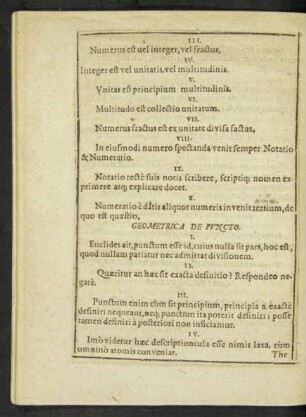 III.
Numerus est vel integer, vel fractus,
IV.
Integer est vel unitatis, vel multitudinis.
V.
Vnitas est principium multitudinis.
VI.
Multitudo est collectio unitatum.
VII.
Numerus fractus est ex unitate divisa factus,
VIII.
In eiusmodi numero spectanda venit semper Notatio
& Numeratio.
IX.
Notatio rectè suis notis scribere, scriptiq; nomen ex-
primere atq; explicare docet.
X.
Numeratio è datis aliquot numeris invenit tertium, de
quo est quæstio,
GEOMETRICA DE PVNCTO.
I.
Euclides ait, punctum esse id, cuius nulla sit pars, hoc est,
quod nullam patiatur nec admittat divisionem.
II.
Quæritur an hæc sit exacta definitio? Respondeo ne-
gatè.
III.
Punctum enim cùm sit principium, principia a. exactè
definiri nequeant, neq; punctum ita poterit definiri: posse
tamen definiri à posteriori non inficiamur.
IV.
Imò videtur hæc descriptiuncula esse nimis laxa, cùm
omninò atomis conveniat.
The